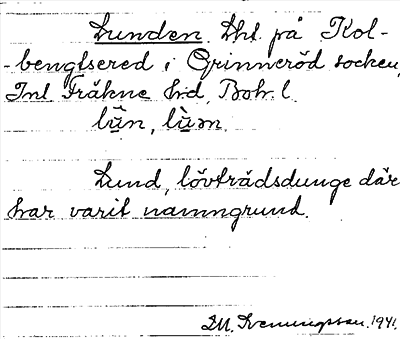 Lunden. Lht. på Kol-
-bengtsered i Grinneröd socken,
Inl. Fräkne hrd, Boh. l.
Lund, lövträdsdunge där
har varit namngrund.
1941.